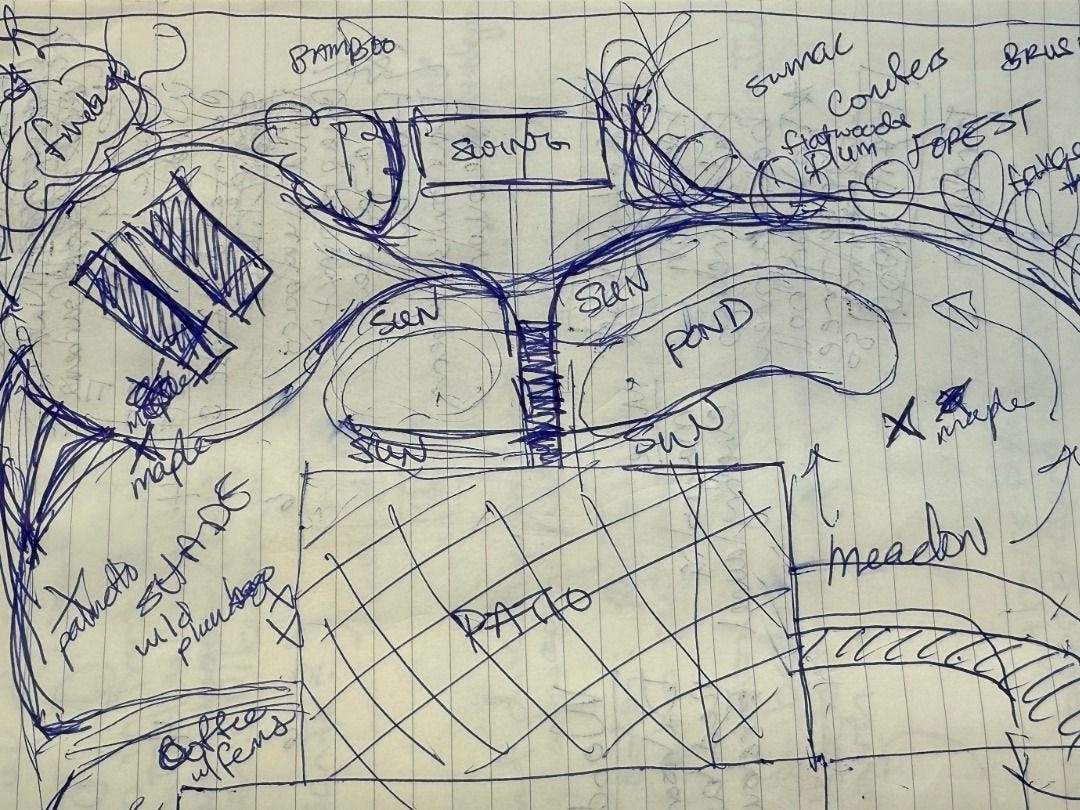 BAMBOO
sumac
Conifers
BRUS
firebush
SWING
flatwoods
plum
FOREST
fringe
SUN
SUN
POND
maple
maple
SUN
SUN
SHADE
meadow
palmetto
wild
plumbago
PATIO
Coffee
w/ ferns